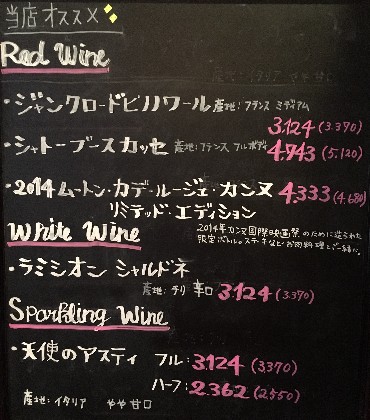 当店オススメ
Red Wine
産地:イタリア やや甘口
・ジャンクロードピノノワール 産地:フランス ミディアム
3.124 (3.370)
・シャトーブースカッセ 産地:フランス フルボディ 4.743 (5.120)
・2014 ムートン・カデ・ルージュ・カンヌ 4.333 (4.680)
リミテッド・エディション
2014年カンヌ国際映画祭のために造られた
限定ボトル。ステーキなどお肉料理とご一緒に。
White Wine
・ラミシオン シャルドネ
産地:チリ 辛口 3.124 (3370)
Sparkling Wine
・天使のアスティ フル:3.124 (3370)
ハーフ:2.362 (2550)
産地:イタリア やや甘口